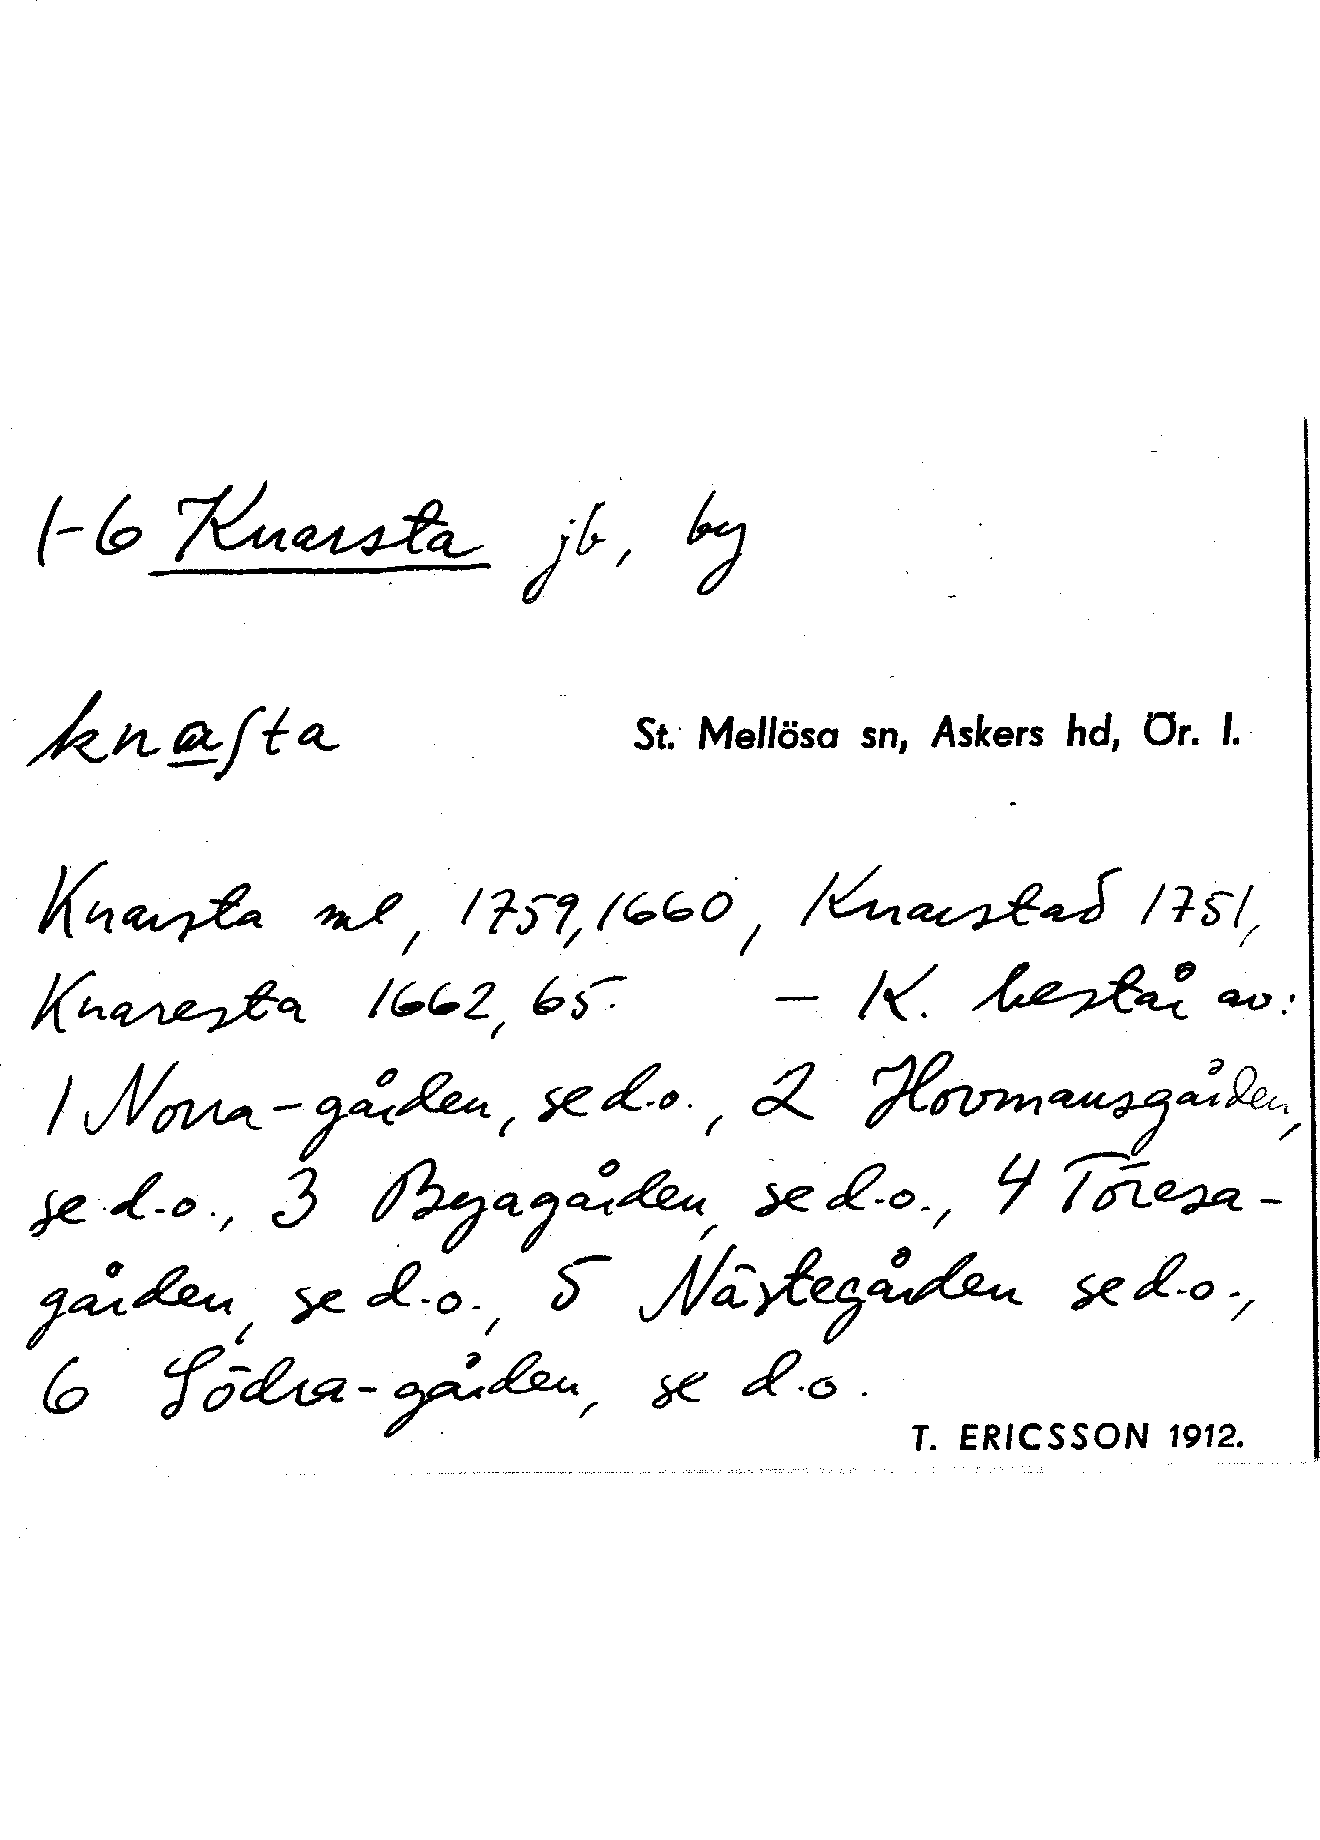 1-6 Knarsta jb, by
knaʃta St. Mellösa sn, Askers hd, Ör. l.
Knarsta ml, 1759, 1660, Knarstad 1751,
Knaresta 1662, 65. – K. består av:
1 Norra-gården, se d.o., 2 Hovmansgården,
se d.o., 3 Byagården, se d.o., 4 Töresa-
gården, se d.o., 5 Nästegården se d.o.,
6 Södra-gården, se d.o.
T. ERICSSON 1912.